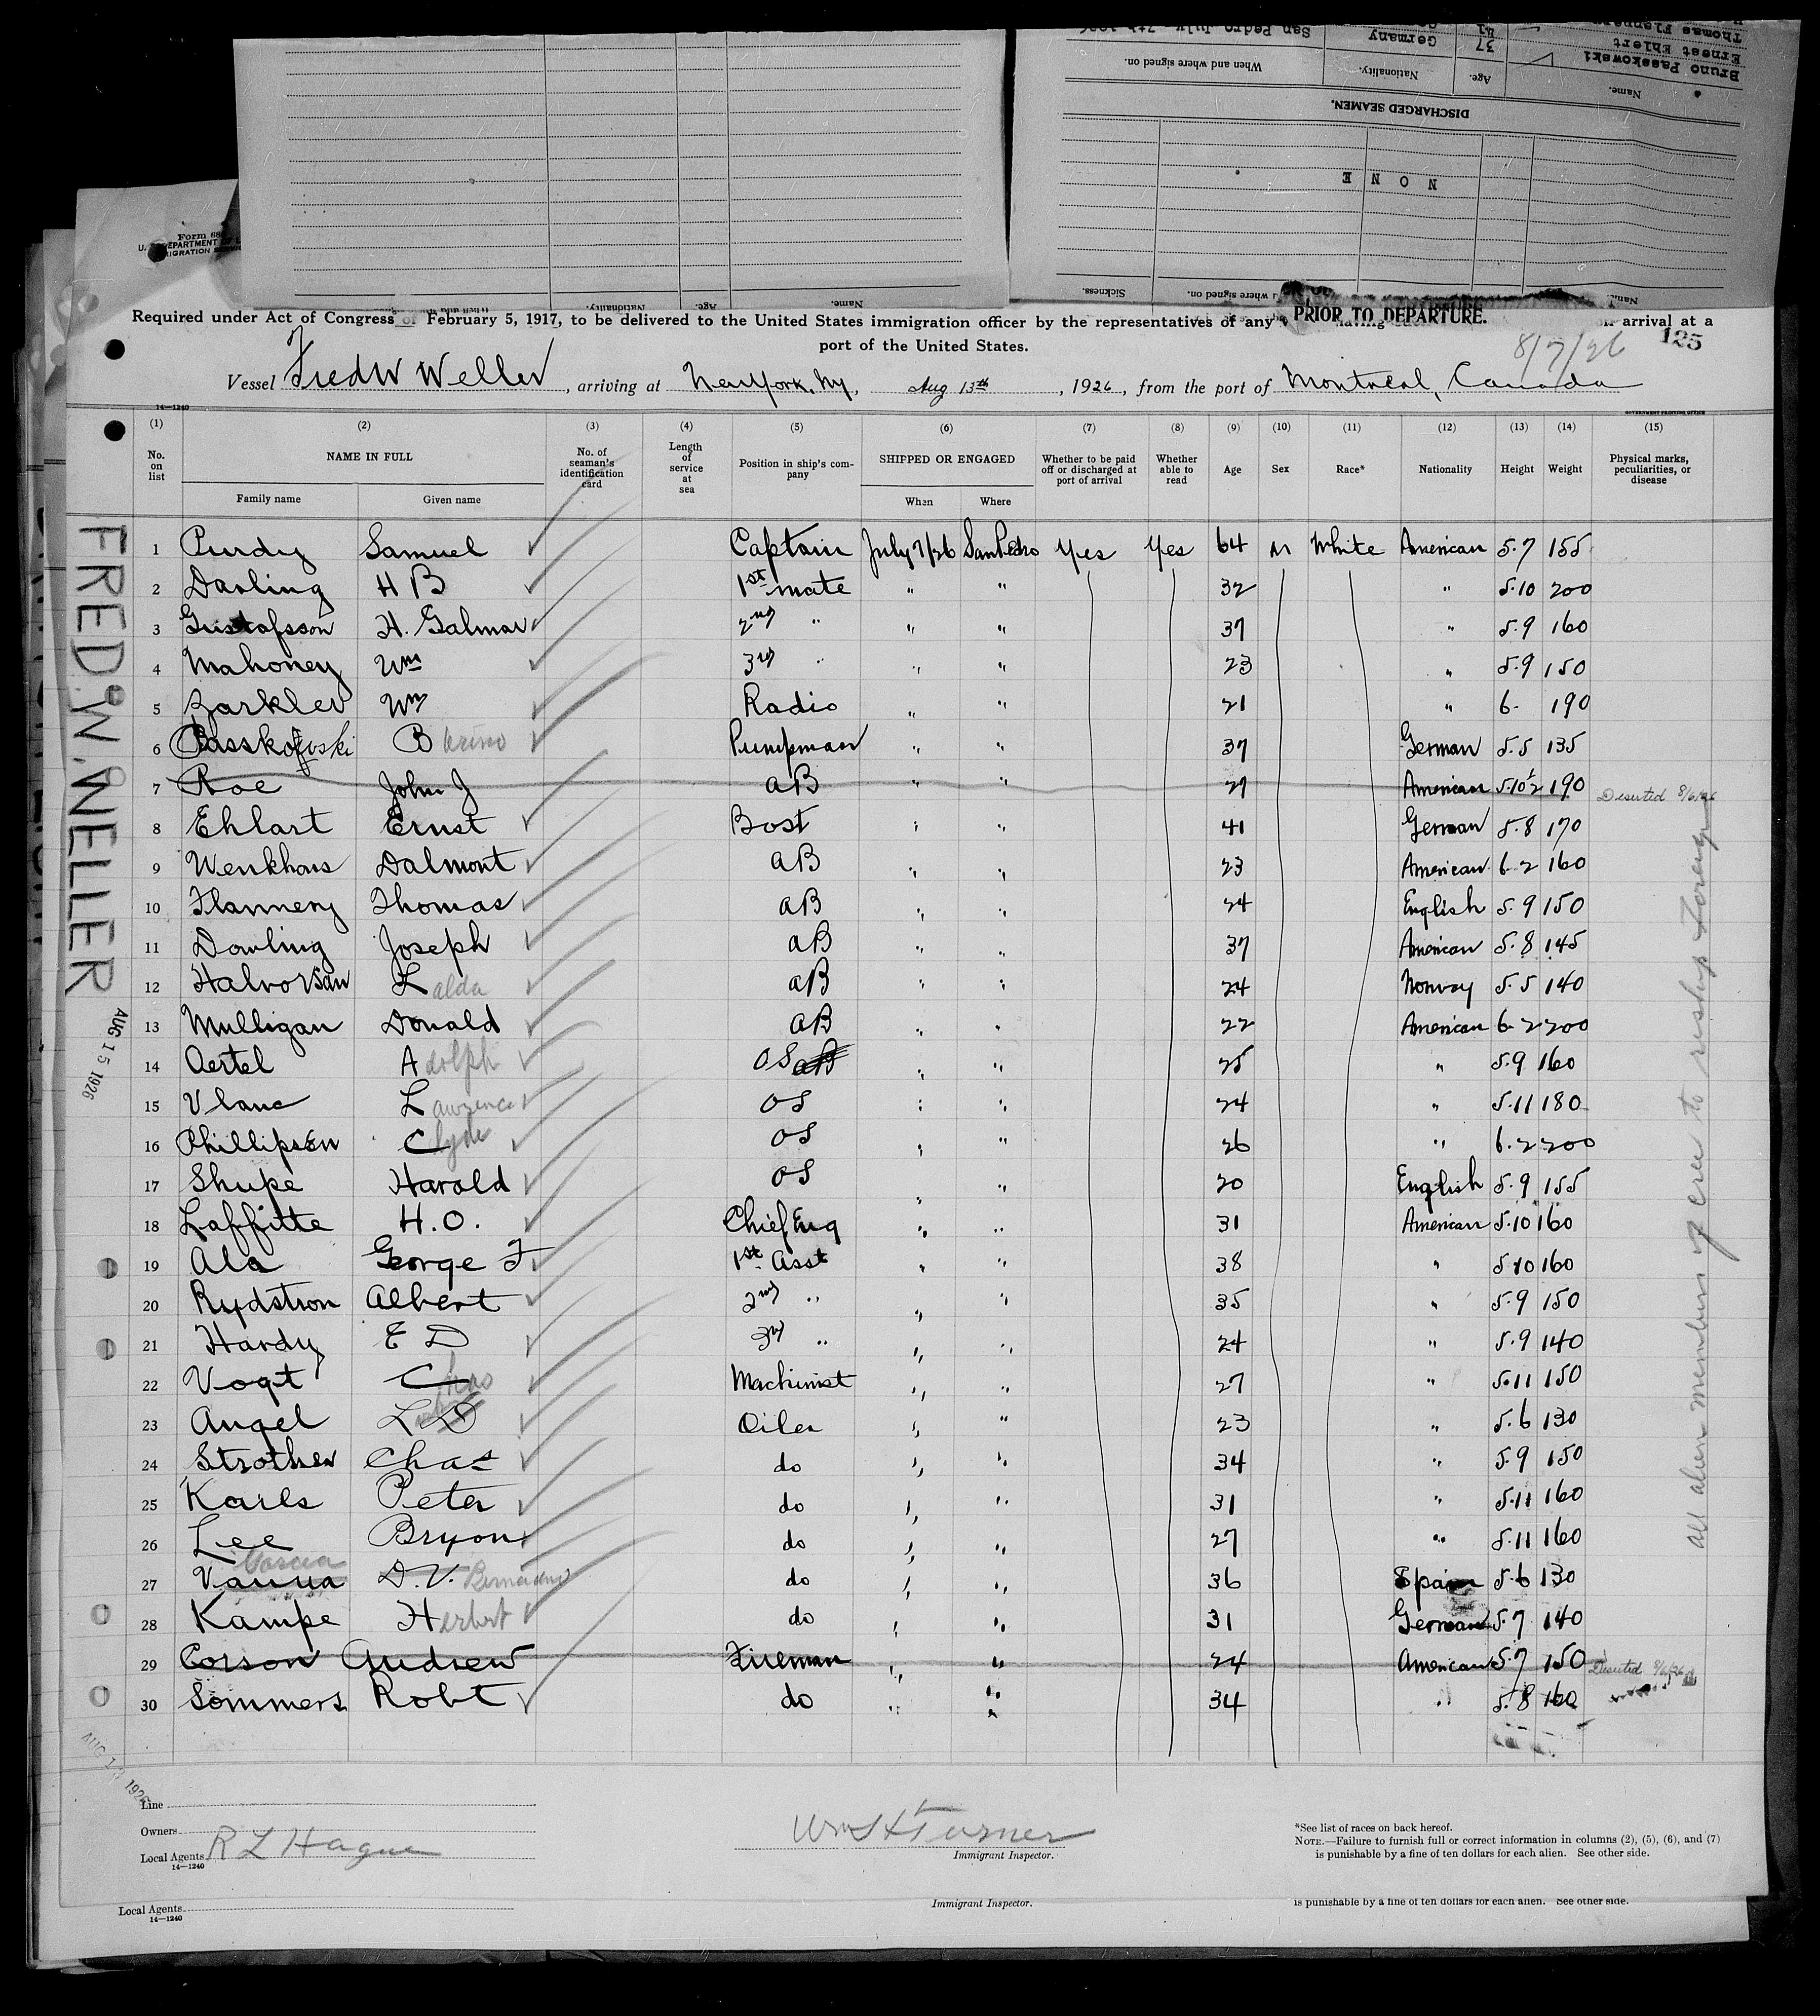 Bruno Passkowski 37 Germany San Pedro July 7th 1926
Ernest Ehlert 41
Thomas
Name. Age. Nationality. When and where signed on.
DISCHARGED SEAMEN.
N O N E
Name. Age. Nationality.
where signed on. Sickness.
Form 68
U. DEPARTMENT OF
IGRATION
PRIOR TO DEPARTURE.
Required under Act of Congress of February 5, 1917, to be delivered to the United States immigration officer by the representatives of any having arrival at a
port of the United States.
125
8/7/26
Vessel Fred W Weller, arriving at New York, Ny, Aug 13th, 1926, from the port of Montreal, Canada
14—1240
GOVERNMENT PRINTING OFFICE
(1) (2) (3) (4) (5) (6) (7) (8) (9) (10) (11) (12) (13) (14) (15)
No. on list NAME IN FULL No. of seaman's identification card Length of service at sea Position in ship's company SHIPPED OR ENGAGED Whether to be paid off or discharged at port of arrival Whether able to read Age Sex Race* Nationality Height Weight Physical marks, peculiarities, or disease
Family name Given name When Where
FRED. W. WELLER
1 Purdy Samuel Captain July 7/26 San Pedro Yes Yes 64 M White American 5.7 155
2 Darling H B 1st mate " " 32 " 5.10 200
3 Gustafsson H. Galmar 2nd " " " 37 " 5.9 160
4 Mahoney Wm 3rd " " " 23 " 5.9 150
5 Zarkler Wm Radio " " 21 " 6- 190
6 Passkowski Bruno Pumpman " " 37 German 5.5 135
7 Roe John J AB " " 27 American 5.10½ 190 Deserted 8/6/26
8 Ehlart Ernst Bost " " 41 German 5.8 170
9 Wenkhaus Dalmont AB " " 23 American 6-2 160
10 Flannery Thomas AB " " 24 English 5.9 150
11 Dowling Joseph AB " " 37 American 5.8 145
12 Halvorsan Lalda AB " " 24 Norway 5.5 140
13 Mulligan Donald AB " " 22 American 6-2 200
14 Oertel Adolph OS AB " " 25 " 5.9 160
15 Vlanc Lawrence OS " " 24 " 5.11 180
16 Phillipsen Clyde OS " " 26 " 6-2 200
17 Shupe Harold OS " " 20 English 5.9 155
18 Laffitte H. O. Chief Eng " " 31 American 5.10 160
19 Ala George F. 1st Asst " " 38 " 5.10 160
20 Rydstron Albert 2nd " " " 35 " 5.9 150
21 Hardy E D 3rd " " " 24 " 5.9 140
22 Vogt Chas Machinist " " 27 " 5.11 150
23 Angel L D Oiler " " 23 " 5.6 130
24 Strother Chas do " " 34 " 5.9 150
25 Karls Peter do " " 31 " 5.11 160
26 Lee Bryon do " " 27 " 5.11 160
Garcia
27 D. V. do " " 36 Spain 5.6 130
28 Kampe Herbert do " " 31 German 5.7 140
29 Corson Andrew Fireman " " 24 American 5.7 150 Deserted 8/6/26
30 Sommers Robt do " " 34 " 5.8 160
all alien members of crew to reship foreign
AUG 15 1926
AUG 13 1926
Line
Owners
Local Agents R L Hague
14—1240
Wm H Turner
Immigrant Inspector.
*See list of races on back hereof.
NOTE.—Failure to furnish full or correct information in columns (2), (5), (6), and (7)
is punishable by a fine of ten dollars for each alien. See other side.
Local Agents
14—1240
Immigrant Inspector.
is punishable by a fine of ten dollars for each alien. See other side.